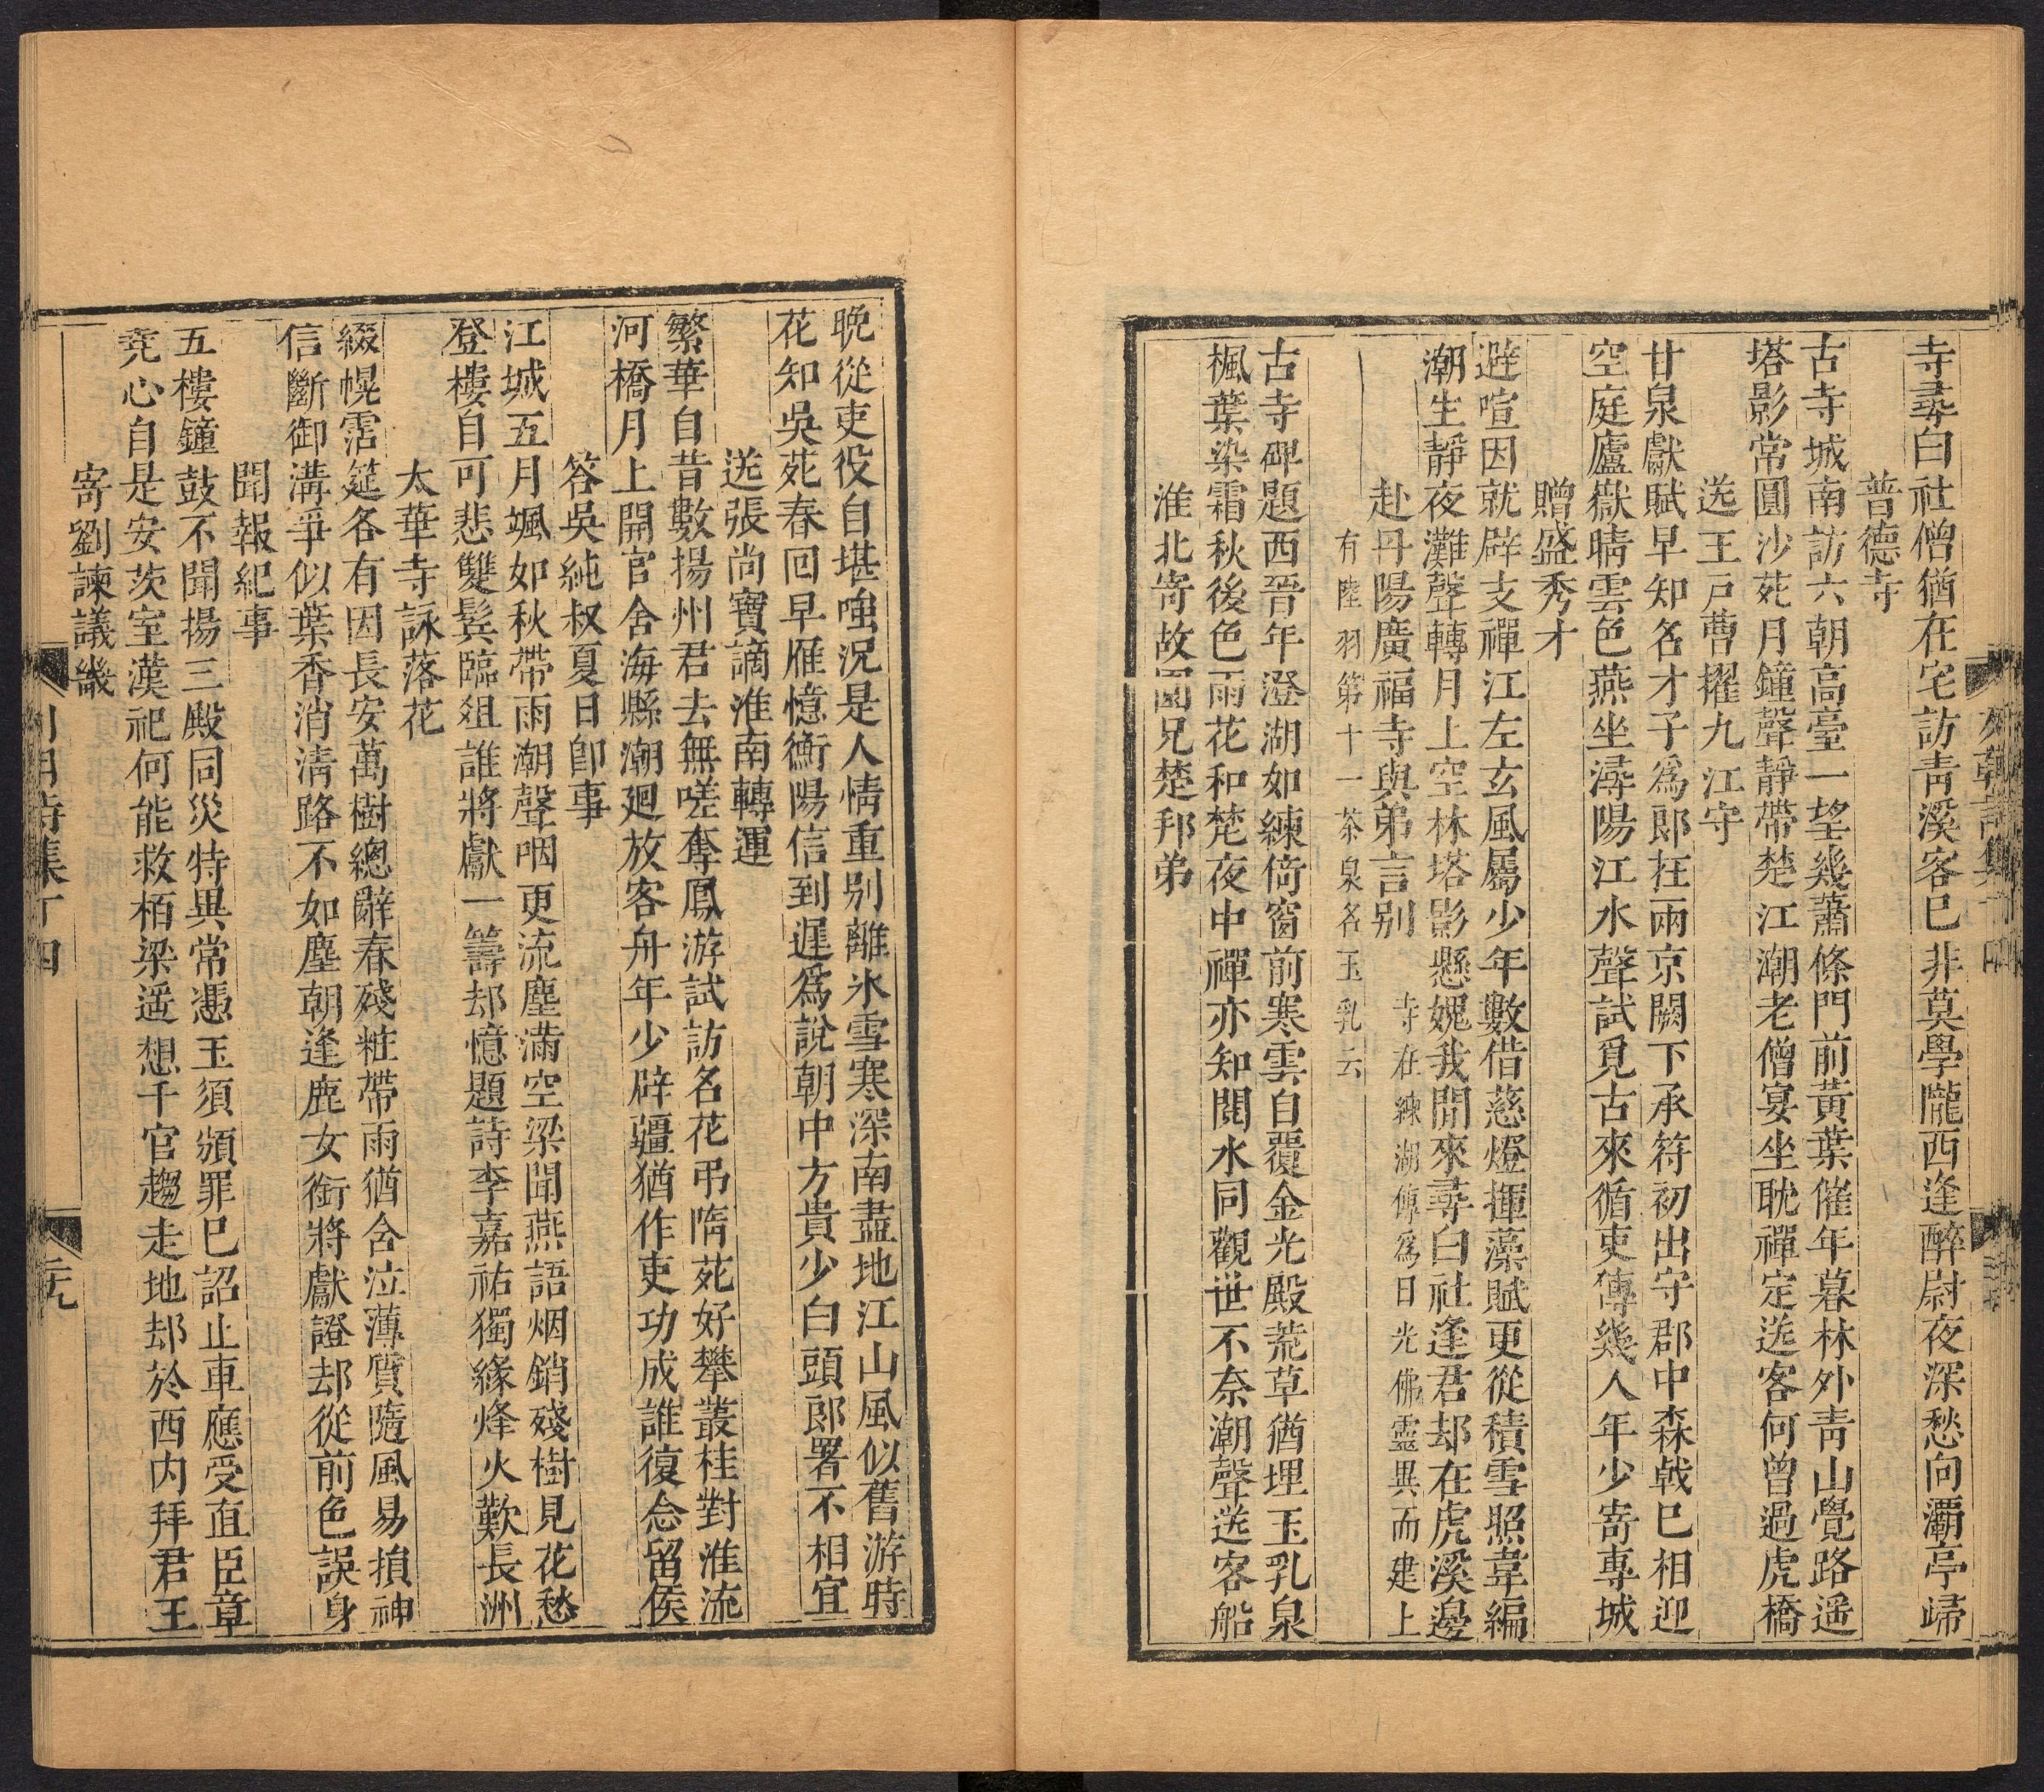 寺尋白社僧猶在宅訪青溪客已非莫學隴西逢醉尉夜深愁向灞亭歸
普德寺
古寺城南訪六朝高臺一望幾蕭條門前黃葉催年暮林外青山覺路遥
塔影常圓沙苑月鐘聲靜帶楚江潮老僧宴坐耽禪定送客何曾過虎橋
送王戸曹擢九江守
甘泉獻賦早知名才子爲郎在兩京闕下承符初出守郡中森戟已相迎
空庭廬嶽晴雲色燕坐潯陽江水聲試覓古來循吏傳幾人年少寄專城
贈盛秀才
避喧因就辟支禪江左玄風屬少年數借慈燈揮藻賦更從積雪照韋編
潮生靜夜灘聲轉月上空林塔影懸媿我閒來尋白社逢君却在虎溪邊
赴丹陽廣福寺與弟言别 寺在練湖傳爲日光佛靈異而建上
有陸羽第十一茶泉名玉乳云
古寺碑題西晉年澄湖如練倚窗前寒雲自覆金光殿荒草猶埋玉乳泉
楓葉染霜秋後色雨花和梵夜中禪亦知閱水同觀世不奈潮聲送客船
淮北寄故園兄楚邦弟
列朝詩集丁四
晩從吏役自堪嗤况是人情重别離氷雪寒深南盡地江山風似舊游時
花知吳苑春回早雁憶衡陽信到遲爲說朝中方貴少白頭郎署不相宜
送張尚寶謫淮南轉運
繁華自昔數揚州君去無嗟奪鳳游試訪名花弔隋苑好攀叢桂對淮流
河橋月上開官舍海縣潮廻放客舟年少辟疆猶作吏功成誰復念留侯
答吳純叔夏日卽事
江城五月颯如秋帶雨潮聲咽更流塵滿空梁聞燕語烟銷殘樹見花愁
登樓自可悲雙鬂臨俎誰將獻一籌却憶題詩李嘉祐獨緣烽火歎長洲
太華寺詠落花
綴幌霑筵各有因長安萬樹總辭春殘粧帶雨猶含泣薄質隨風易損神
信斷御溝爭似葉香消淸路不如塵朝逢鹿女銜將獻證却從前色誤身
聞報紀事
五樓鐘鼓不聞揚三殿同災特異常憑玉須頒罪已詔止車應受直臣章
堯心自是安茨室漢祀何能救栢梁遥想千官趨走地却於西内拜君王
寄劉諫議畿
列朝詩集丁四